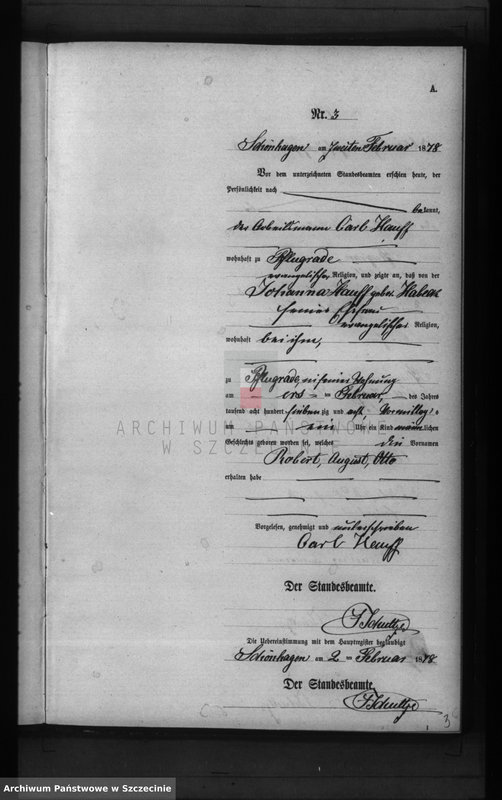 A.
Nr. 3
Schönhagen am zweiten Februar 1878
Vor dem unterzeichneten Standesbeamten erschien heute, der
Persönlichkeit nach
bekannt,
der Arbeitsmann Carl Hauff
wohnhaft zu Pflugrade
evangelischer Religion, und zeigte an, daß von der
Johanna Hauff geber.
seiner Ehefrau
evangelischer Religion,
wohnhaft bei ihm,
zu Pflugrade, in seiner Wohnung
am ersten Februar, des Jahres
tausend acht hundert siebenzig und acht, Vormittags
um ein Uhr ein Kind männlichen
Geschlechts geboren worden sei, welches die Vornamen
Robert, August, Otto
erhalten habe
Vorgelesen, genehmigt und unterschrieben
Carl Hauff
Der Standesbeamte.
Schultze
Die Uebereinstimmung mit dem Hauptregister beglaubigt
Schönhagen am 2 ten Februar 1878
Der Standesbeamte.
Schultze
3
ARCHIWUM PAŃSTWOWE
W SZCZECINIE
Archiwum Państwowe w Szczecinie